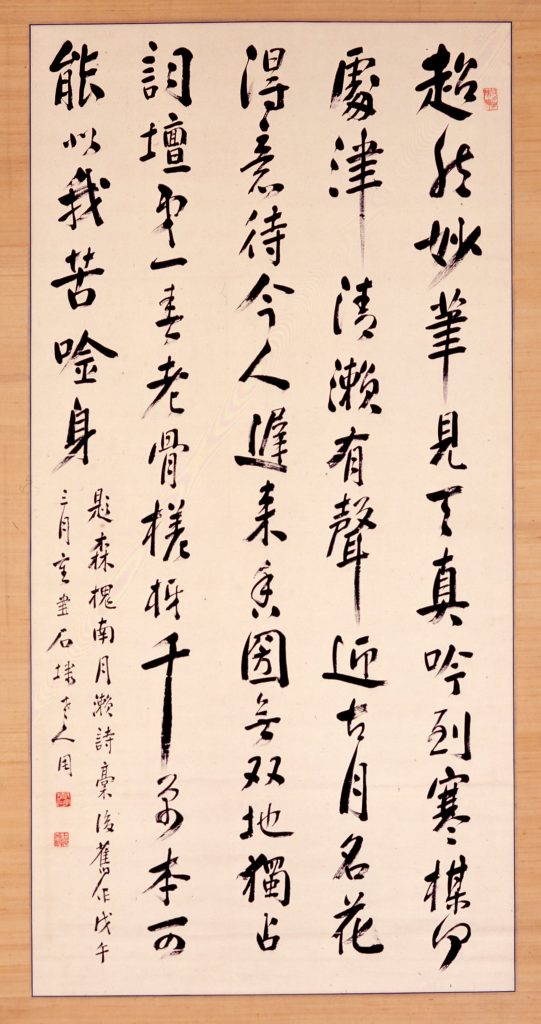 超然妙筆見天真吟到寒楳何
處津清瀨有聲迎古月名花
得意待今人遲来香國無双地獨占
詞壇第一春老骨槎枒千萬本可
能似我苦唫身
題森槐南月瀨詩稾後舊作戊午
三月石埭老人周